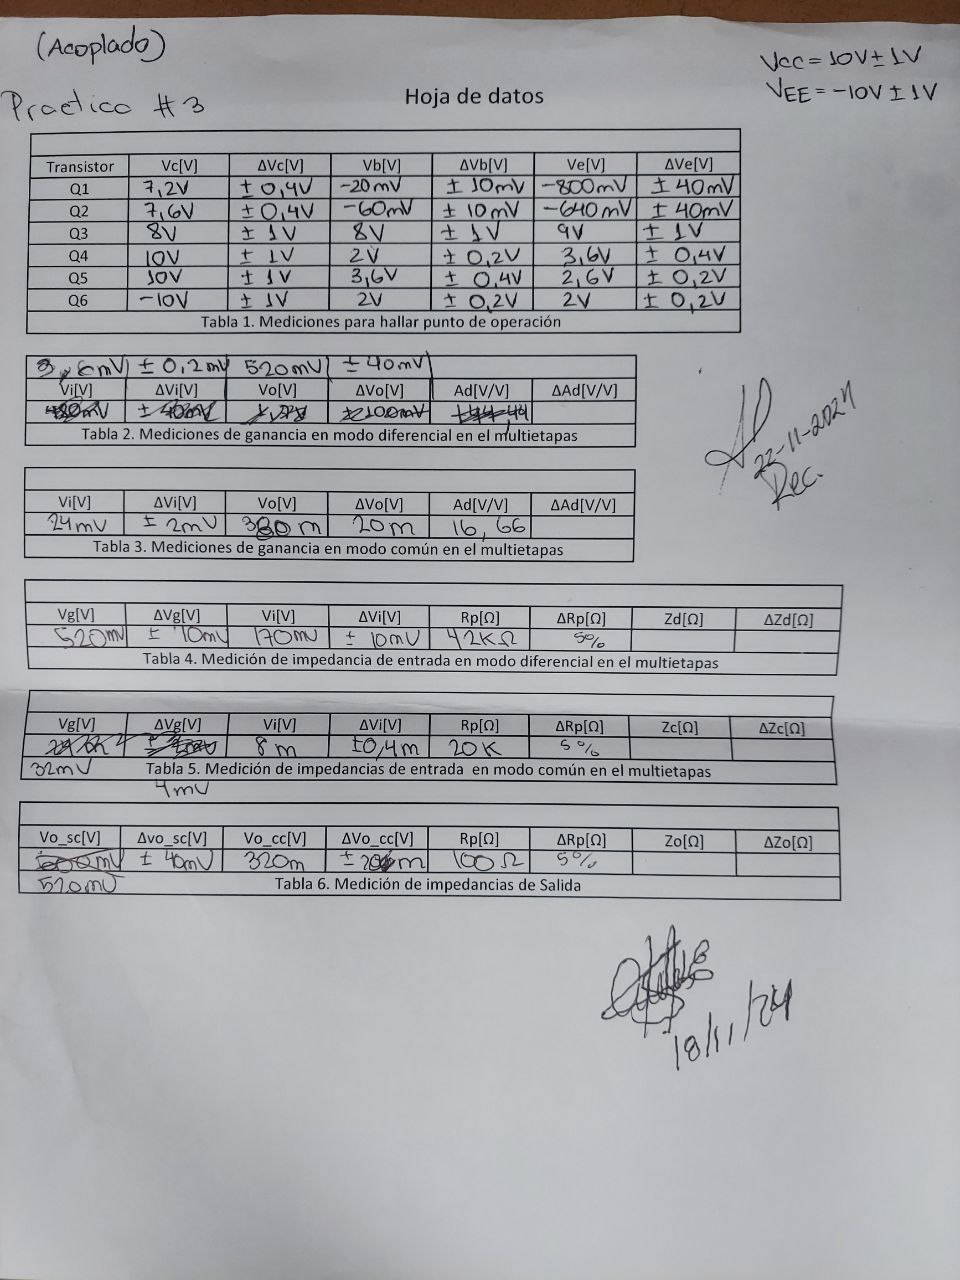 (Acoplado)
VCC = 10V ± 1V
VEE = -10V ± 1V
Practica #3
Hoja de datos
Transistor Vc[V] ΔVc[V] Vb[V] ΔVb[V] Ve[V] ΔVe[V]
Q1 7,2V ± 0,4V -20mV ± 10mV -800mV ± 40mV
Q2 7,6V ± 0,4V -60mV ± 10mV -640mV ± 40mV
Q3 8V ± 1V 8V ± 1V 9V ± 1V
Q4 10V ± 1V 2V ± 0,2V 3,6V ± 0,4V
Q5 10V ± 1V 3,6V ± 0,4V 2,6V ± 0,2V
Q6 -10V ± 1V 2V ± 0,2V 2V ± 0,2V
Tabla 1. Mediciones para hallar punto de operación
± 0,2mV 520mV ± 40mV
Vi[V] ΔVi[V] Vo[V] ΔVo[V] Ad[V/V] ΔAd[V/V]
± 40mV ± 100mV
Tabla 2. Mediciones de ganancia en modo diferencial en el multietapas
22-11-2024
Rec.
Vi[V] ΔVi[V] Vo[V] ΔVo[V] Ad[V/V] ΔAd[V/V]
24mV ± 2mV 20m 16,66
Tabla 3. Mediciones de ganancia en modo común en el multietapas
Vg[V] ΔVg[V] Vi[V] ΔVi[V] Rp[Ω] ΔRp[Ω] Zd[Ω] ΔZd[Ω]
520mV ± 10mV 170mV ± 10mV 42KΩ 5%
Tabla 4. Medición de impedancia de entrada en modo diferencial en el multietapas
Vg[V] ΔVg[V] Vi[V] ΔVi[V] Rp[Ω] ΔRp[Ω] Zc[Ω] ΔZc[Ω]
8m ±0,4m 20K 5%
32mV Tabla 5. Medición de impedancias de entrada en modo común en el multietapas
4mV
Vo_sc[V] Δvo_sc[V] Vo_cc[V] ΔVo_cc[V] Rp[Ω] ΔRp[Ω] Zo[Ω] ΔZo[Ω]
600mV ± 40mV 320m 100Ω 5%
520mV Tabla 6. Medición de impedancias de Salida
18/11/24